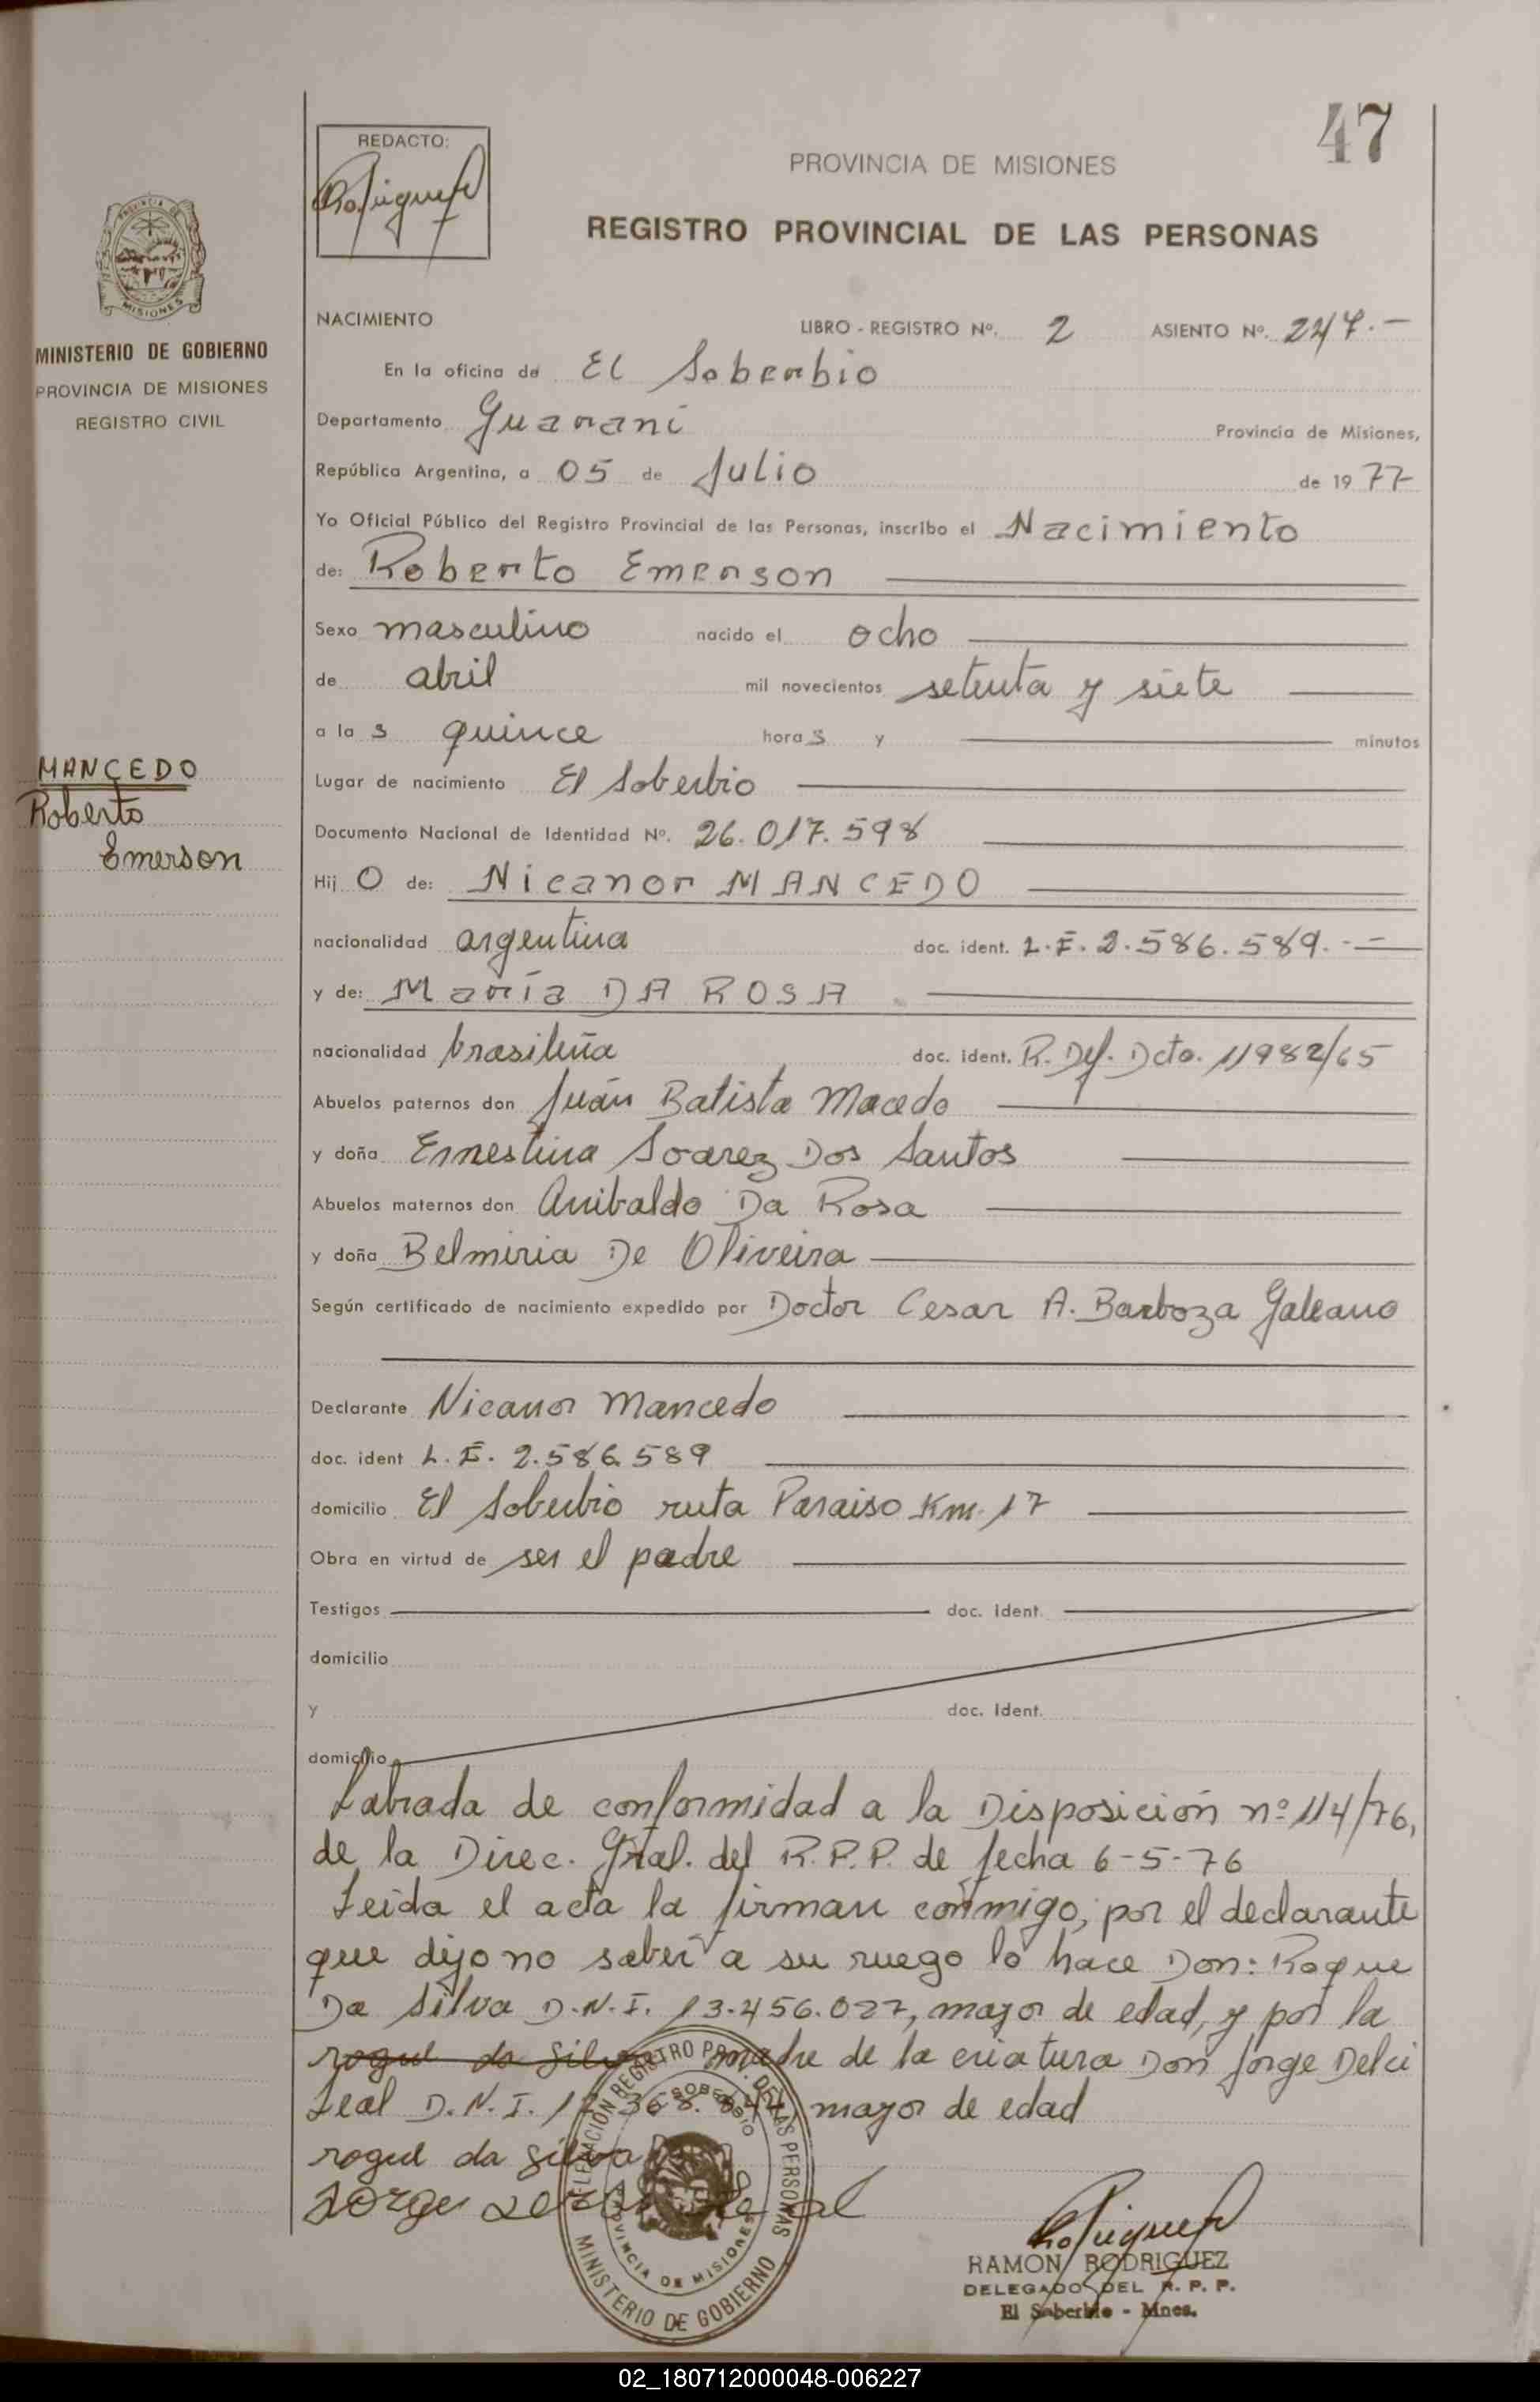 47
REDACTO:
PROVINCIA DE MISIONES
REGISTRO PROVINCIAL DE LAS PERSONAS
MISIONES
MINISTERIO DE GOBIERNO
PROVINCIA DE MISIONES
REGISTRO CIVIL
MANCEDO
Roberto
Emerson
NACIMIENTO LIBRO - REGISTRO Nº. 2 ASIENTO Nº. 247.-
En la oficina de El Soberbio
Departamento Guarani Provincia de Misiones,
República Argentina, a 05 de Julio de 1977
Yo Oficial Público del Registro Provincial de las Personas, inscribo el Nacimiento
de: Roberto Emerson
Sexo masculino nacido el ocho
de abril mil novecientos setenta y siete
a la s quince hora s y minutos
Lugar de nacimiento El Soberbio
Documento Nacional de Identidad Nº. 26.017.598
Hij O de: Nicanor MANCEDO
nacionalidad argentina doc. ident. L.E. 2.586.589.--
y de: María DA ROSA
nacionalidad brasileña doc. ident. R. Def. Dcto. 11982/65
Abuelos paternos don Juán Batista Macedo
y doña Ernestina Soarez Dos Santos
Abuelos maternos don Anibaldo Da Rosa
y doña Belmiria De Oliveira
Según certificado de nacimiento expedido por Doctor Cesar A. Barboza Galeano
Declarante Nicanor Mancedo
doc. ident L.E. 2.586.589
domicilio El Soberbio ruta Paraiso Km. 17
Obra en virtud de ser el padre
Testigos doc. ident.
domicilio
y doc. Ident.
domicilio
Labrada de conformidad a la Disposición nº 114/76,
de la Direc. Gral. del R.P.P. de fecha 6-5-76
Leida el acta la firman conmigo, por el declarante
que dijo no saber a su ruego lo hace Don: Roque
Da Silva D.N.I. 13.456.027, mayor de edad, y por la
roque da Silva madre de la criatura Don Jorge Delci
Leal D.N.I. mayor de edad
roque da Silva
Jorge
DELEGACION REGISTRO PROV. DE LAS PERSONAS
EL SOBERBIO
PROVINCIA DE MISIONES
MINISTERIO DE GOBIERNO
RAMON RODRIGUEZ
DELEGADO DEL R. P. P.
El Soberbio - Mnes.
02_180712000048-006227